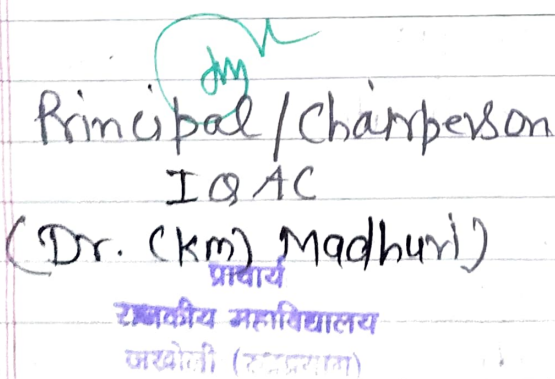 Principal/Chairperson
IQAC
(Dr. (Km) Madhuri)
प्राचार्य
राजकीय महाविद्यालय
जखोली (रूद्रप्रयाग)